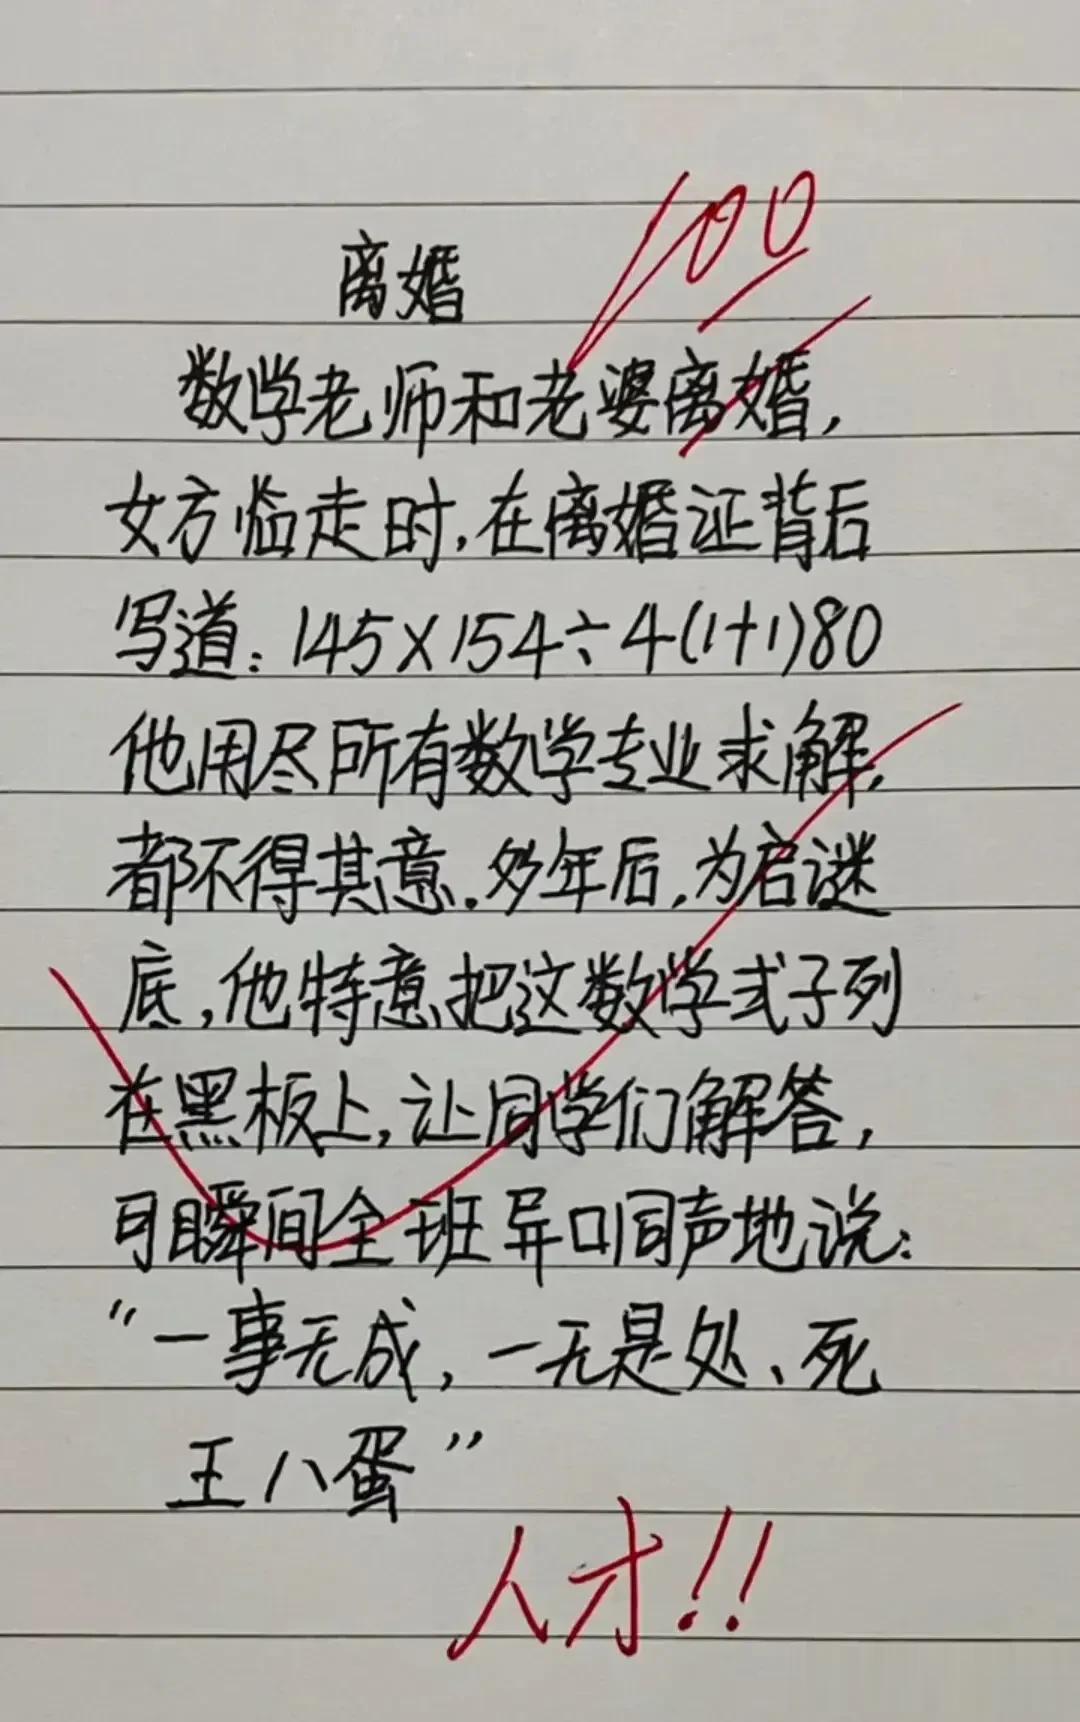 100
离婚
数学老师和老婆离婚,
女方临走时,在离婚证背后
写道:145×154÷4(1+1)80
他用尽所有数学专业求解,
都不得其意.多年后,为启谜
底,他特意把这数学式子列
在黑板上,让同学们解答,
可瞬间全班异口同声地说:
“一事无成,一无是处、死
王八蛋”
人才!!